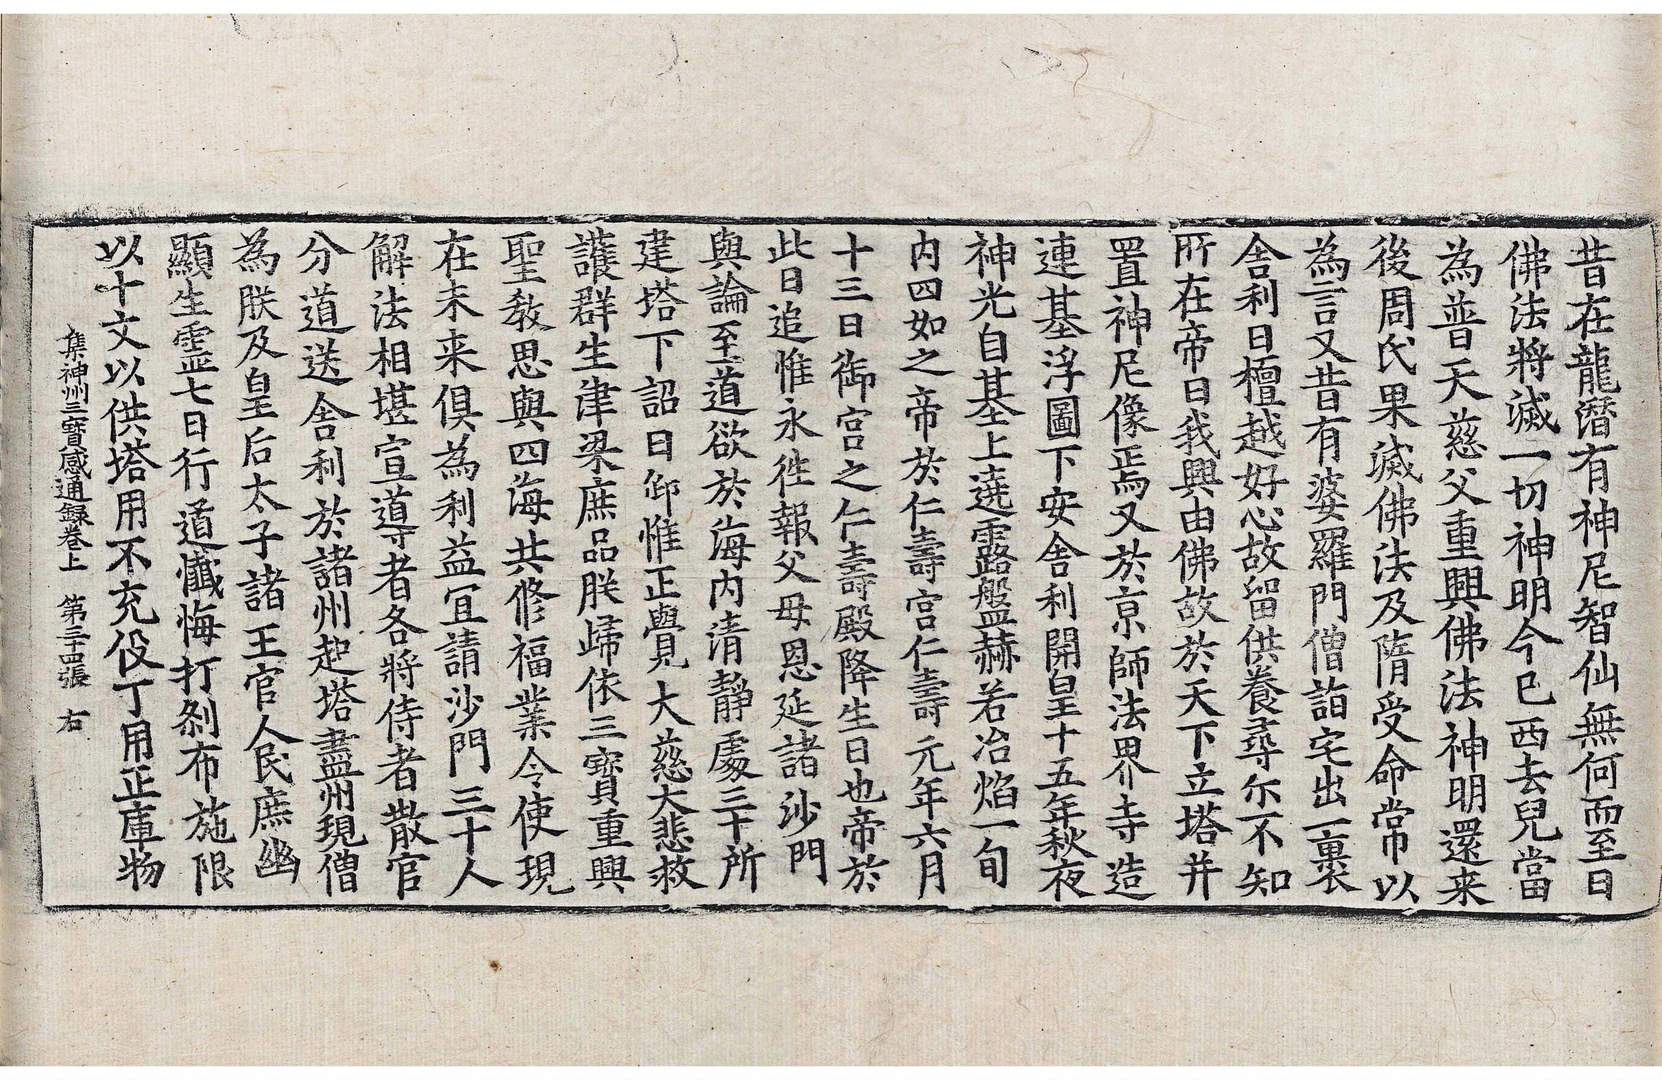 昔在龍潛有神尼智仙無何而至曰
佛法將滅一切神明今已西去兒當
為普天慈父重興佛法神明還来
後周氏果滅佛法及隋受命常以
為言又昔有婆羅門僧詣宅出一裹
舍利曰檀越好心故留供養尋尓不知
所在帝曰我興由佛故於天下立塔并
置神尼像焉又於京師法界寺造
連基浮圖下安舍利開皇十五年秋夜
神光自基上遶露盤赫若冶焰一旬
内四如之帝於仁壽宮仁壽元年六月
十三日御宮之仁壽殿降生日也帝於
此日追惟永徃報父母恩延諸沙門
與論至道欲於海内清静處三十所
建塔下詔曰仰惟正覺大慈大悲救
護群生津梁庶品朕歸依三寶重興
聖教思與四海共修福業令使現
在未来俱為利益宜請沙門三十人
解法相堪宣導者各將侍者散官
分道送舍利於諸州起塔盡州現僧
為朕及皇后太子諸王官人民庶幽
顯生靈七日行道懺悔打剎布施限
以十文以供塔用不充役丁用正庫物
集神州三寶感通録卷上 第三十四張 右